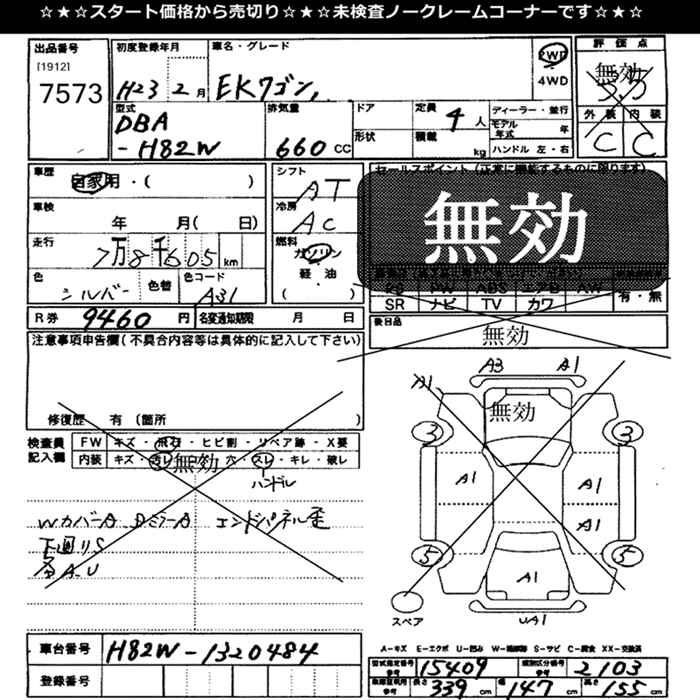 ☆★☆スタート価格から売切り☆★☆未検査ノークレームコーナーです☆★☆
出品番号 初度登録年月 車名・グレード 評価点
[1912]
7573 H23 2月 EKワゴン 2WD 4WD 無効 3.5
型式 排気量 ドア 定員 ディーラー・並行 外装 内装
DBA-H82W 660CC 形状 積載 4人 kg モデル年式 年 ハンドル 左・右 C C
車歴 自家用・( ) シフト AT セールスポイント(正常に機能するものに限ります)
車検 年 月( 日) 冷房 AC 無効
走行 7万8千605km 燃料 ガソリン 軽油 ( )
色 シルバー 色替 色コード A31
PS PW ABS エアB AW
SR ナビ TV カワ 有・無
R券 9460円 名変通知期限 月 日 後日品
無効
注意事項申告欄(不具合内容等は具体的に記入して下さい)
修復歴 有(箇所 )
検査員記入欄 FW キズ・飛石・ヒビ割・リペア跡・X要
内装 キズ・汚レ・穴・スレ・キレ・破レ
無効
ハンドル
WカバーA DミラーA エンドパネル歪
下廻りS
各A.U
A3 A1
A1
無効
3 3
A1 A1
A1
5 5
A1
スペア UA1
A-キズ E-エクボ U-凹み W-補修跡 S-サビ C-腐食 XX-交換済
車台番号 H82W-1320484
登録番号
型式指定番号 参考 15409 類別区分番号 参考 2103
車庫証明用 参考 長さ 339cm 幅 147cm 高さ 155cm